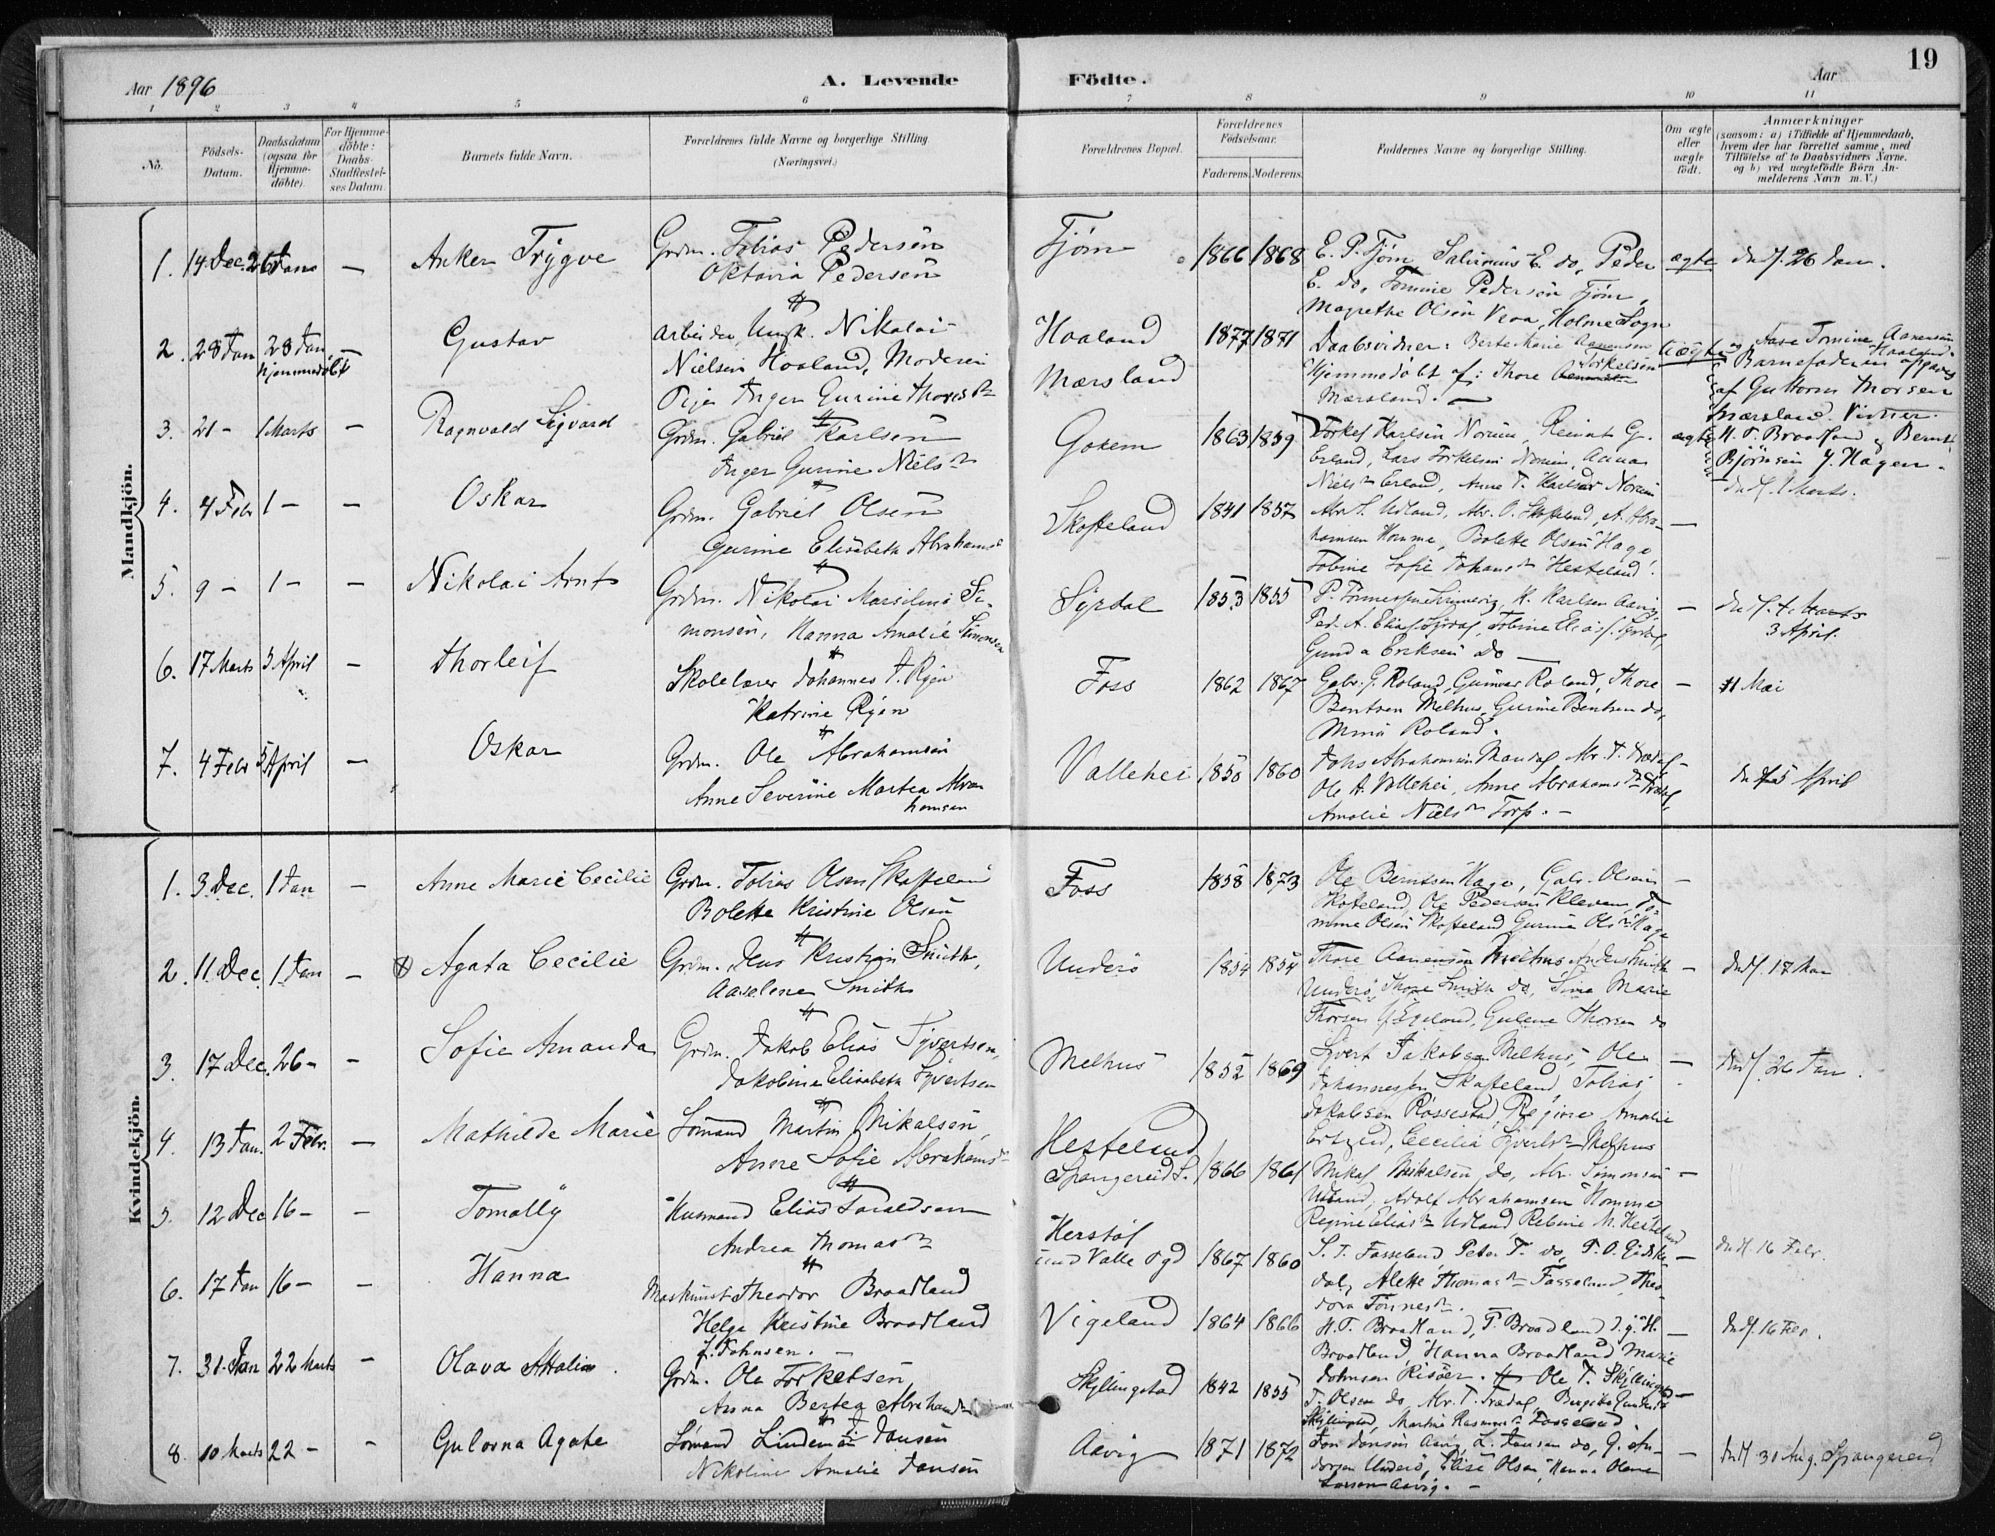 Aar 1896
A. Levende Födte.
Aar
19
1 2 3 4 5 6 7 8 9 10 11
No.
Födsels-Datum.
Daabsdatum (ogsaa for Hjemme-döbte).
For Hjemme-döbte: Daabs-Stadfæstel-ses Datum.
Barnets fulde Navn.
Forældrenes fulde Navne og borgerlige Stilling (Næringsvei.)
Forældrenes Bopæl.
Forældrenes Födselsaar.
Faderens. Moderens.
Faddernes Navne og borgerlige Stilling.
Om ægte eller uægte födt.
Anmærkninger
(saasom: a) i Tilfælde af Hjemmedaab,
hvem der har forrettet samme, med
Tilföielse af to Daabsvidners Navne.
og b) ved uægtefödte Börn An-
melderens Navn m. V.)
Mandkjön.
1. 14 Dec. 26 Jan — Anker Trygve
Grdm. Tobias Pedersen
Oktavia Pedersen
Fjöm 1866 1868
E. P. Fjöm, E. do, Peder
E. do, Tomine Pedersen Fjöm,
Magrethe Olsen Vraa, Holme Sogn
ægte
26 Jan.
2. 28 Jan 28 Jan hjemmedøbt — Gustav
Arbeider, Ungk. Nikolai
Nielsen Haaland, Moderen
Pige Inger Gurine Thores
Haaland
Mærsland
1877 1871
Daabsvidner: Berte Marie Aanensen
Hjemmedøbt af: Thore Torkelsen
Mærsland. —
uægte
Aase Tomine Aanensen
Haaland.
Barnefaderen opgaves
af Guttorm Morsen
Mærsland. Vidner.
H. T. Braadland & Bernt
Björnsen Y. Hagen.
3. 21 - 1 Marts — Ragnvald Sigvard
Grdm. Gabriel Karlsen
Inger Gurine Niels
Gokem 1863 1859
Torkel Karlsen Noreim, Reinat G.
Erland, Lars Torkelsen Noreim, Anna
Niels Erland, Anne T. Karlsen Noreim
ægte
1 Marts.
4. 4 Febr 1 - — Oskar
Grdm. Gabriel Olsen
Gurine Elisabeth Abrahams
Skofteland 1851 1857
Abr. S. Udland, Abr. O. Skofteland, A. Abra-
hamsen Homme, Bolette Olsen Hage
Tobine Sofie Johans Hesteland.
—
5. 9 - 1 - — Nikolai Arnt
Grdm. Nikolai Marselius Si-
monsen, Hanna Amalie Simonsen
Syrdal 1853 1855
P. Tönnessen, K. Karlsen Aavig
Ped. A. Elias Syrdal, Tobine Elias. Syrdal,
Gunda Eriksen do —
— Marts
3 April.
6. 17 Marts 3 April — Thorleif
Skolelærer Johannes T. Ryen
Katrine Ryen
Foss 1862 1867
Gabr. G. Roland, Gunvor Roland, Thore
Bentsen Melhus, Gurine Bentsen do,
Mina Roland.
— 11 Mai
7. 4 Febr 5 April — Oskar
Grdm. Ole Abrahamsen
Anne Severine Martea Abra
hamsen
Vallehei 1850 1860
Johs Abrahamsen Mandal, Abr. T. Trædal
Ole A. Vallehei, Anne Abrahams Trædal
Amalie Niels Torp. —
5 April
Kvindekjön.
1. 3 Dec. 1 Jan — Anne Marie Cecilie
Grdm. Tobias Olsen Skofteland
Bolette Kristine Olsen
Foss 1858 1873
Ole Berntsen Hage, Gabr. Olsen
Skofteland, Ole Pedersen Kleven, To-
mine Olsen Skofteland, Gurine Ols Hage
—
2. 11 Dec. 1 Jan — Agata Cecilie
Grdm. Jens Kristian Smith,
Aasalene Smith
Underö 1854 1854
Thore Aanensen Melhus, Anders Smith
Underö, Thore Smith do, Sina Marie
Thorsen Egeland, Gulene Thorsen do
— 17 Mar
3. 17 Dec. 26 - — Sofie Amanda
Grdm. Jakob Elias Syvertsen,
Jakobine Elisabeth Syvertsen
Melhus 1852 1869
Syvert Jakobsen Melhus, Ole
Johannessen Skofteland, Tobias
Jakobsen Rossestad, Regine Amalie
Ertzeid, Cecilia Syverts Melhus
— 26 Jan.
4. 13 Jan. 2 Febr. — Mathilde Marie
Sömand Martin Mikalsen,
Anne Sofie Abrahams
Hesteland
Spangereid S. 1866 1861
Mikal Mikalsen do, Abr. Simonsen
Udland, Adolf Abrahamsen Homme
Regine Elias Udland, Rebine M. Hesteland
—
5. 12 Dec 16 - — Tomally
Husmand Elias Taraldsen
Andrea Thomas
Herstöl
und Valle Pgd 1867 1860
S. T. Fasseland, Peter T. do, T. O. Eidske-
dal, Alette Thomas Fasseland, Theo-
dora Tönnes.
— 16 Febr.
6. 17 Jan 16 - — Hanna
Maskinist Theodor Braadland
Helga Kristine Braadland
f. Johnsen. —
Vigeland 1864 1866
H. T. Braadland, T. Braadland, J. g. H.
Braadland, Hanna Braadland, Marie
Johnsen Risöer.
— 16 Febr.
7. 31 Jan 22 Marts — Olava Attalia
Grdm. Ole Torkelsen
Anna Bertea Abrahams
Skjllingstad 1842 1855
Ole T. Skjllingstad
T. Olsen do, Abr. T. Trædal, Bergitte Gunders
Skjllingstad, Martine Rasmus Fasseland.
—
8. 10 Marts 22 - - Gulovna Agate
Sömand Lindemar Jansen
Nikoline Amalie Jansen
Aavig 1871 1872
Jon Jonsen Aavig, L. Jansen do, G. An-
dersen Underö, Elise Olsen, Hanna Olava
Larsen Aavig. —
— 31 Aug. Spangereid